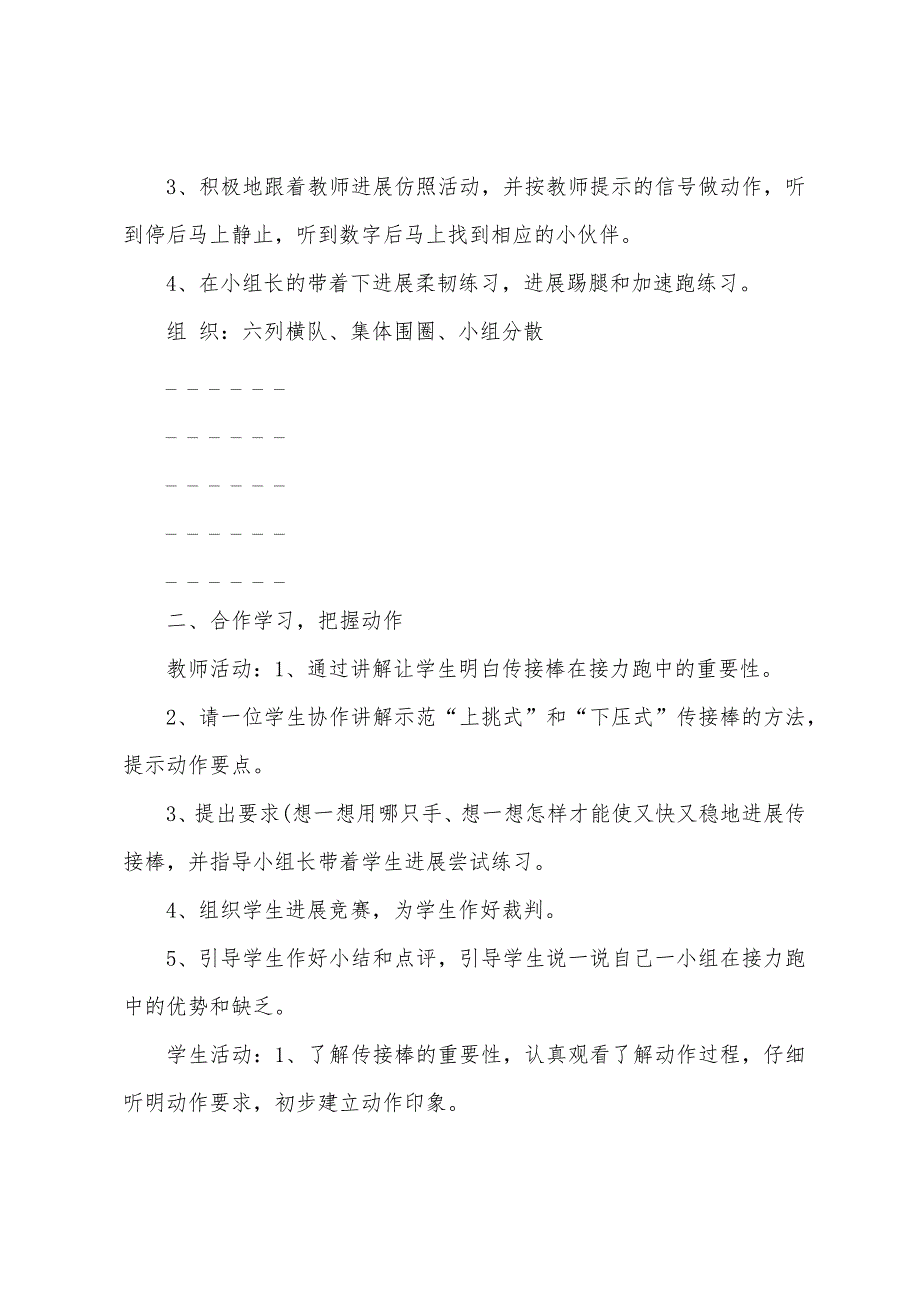 3、积极地跟着教师进展仿照活动，并按教师提示的信号做动作，听
到停后马上静止，听到数字后马上找到相应的小伙伴。
4、在小组长的带着下进展柔韧练习，进展踢腿和加速跑练习。
组 织：六列横队、集体围圈、小组分散
_ _ _ _ _ _
_ _ _ _ _ _
_ _ _ _ _ _
_ _ _ _ _ _
_ _ _ _ _ _
二、合作学习，把握动作
教师活动：1、通过讲解让学生明白传接棒在接力跑中的重要性。
2、请一位学生协作讲解示范“上挑式”和“下压式”传接棒的方法，
提示动作要点。
3、提出要求(想一想用哪只手、想一想怎样才能使又快又稳地进展传
接棒，并指导小组长带着学生进展尝试练习。
4、组织学生进展竞赛，为学生作好裁判。
5、引导学生作好小结和点评，引导学生说一说自己一小组在接力跑
中的优势和缺乏。
学生活动：1、了解传接棒的重要性，认真观看了解动作过程，仔细
听明动作要求，初步建立动作印象。